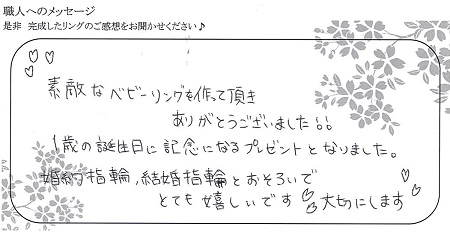 職人へのメッセージ
是非 完成したリングのご感想をお聞かせください♪
素敵なベビーリングを作って頂き
ありがとうございました!!
1歳の誕生日に記念になるプレゼントとなりました。
婚約指輪,結婚指輪とおそろいで
とても嬉しいです♡大切にします